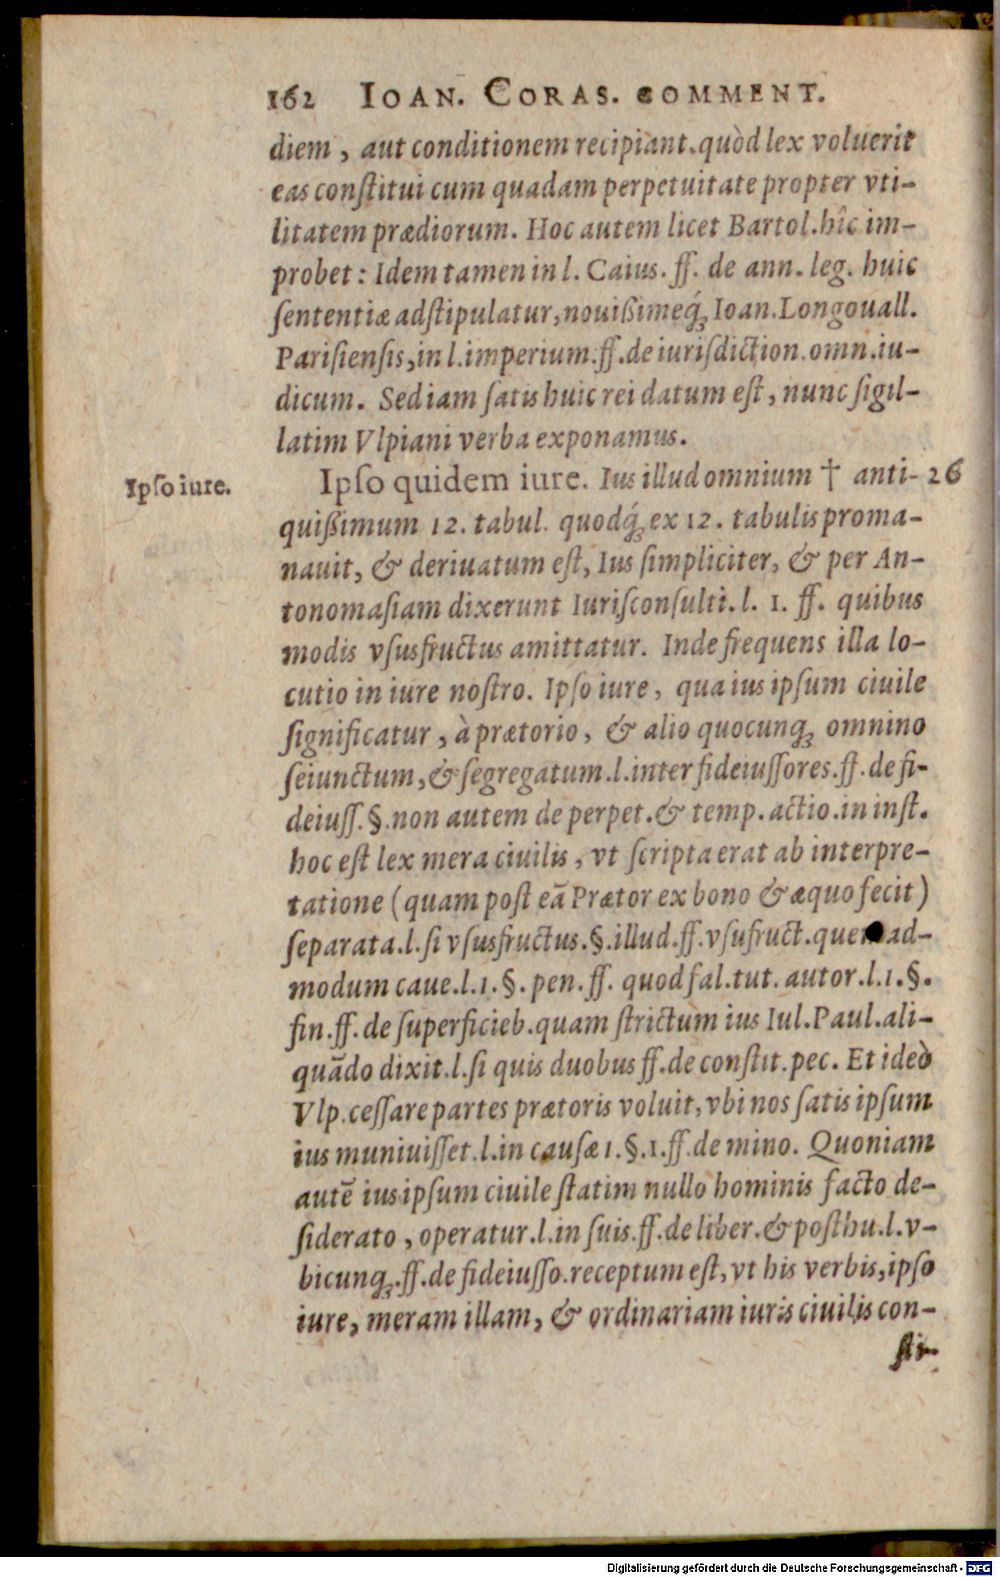 162 IOAN. CORAS. COMMENT.
diem, aut conditionem recipiant. quòd lex voluerit
eas conſtitui cum quadam perpetuitate propter vti-
litatem prædiorum. Hoc autem licet Bartol. hîc im-
probet: Idem tamen in l. Caius. ff. de ann. leg. huic
ſententiæ adſtipulatur, nouißimeq́ꝫ Ioan. Longouall.
Pariſienſis, in l. imperium. ff. de iuriſdiction. omn. iu-
dicum. Sed iam ſatis huic rei datum eſt, nunc ſigil-
latim Vlpiani verba exponamus.
Ipſo iure. Ipſo quidem iure. Ius illud omnium † anti- 26
quißimum 12. tabul. quodq́ꝫ ex 12. tabulis proma-
nauit, & deriuatum eſt, Ius ſimpliciter, & per An-
tonomaſiam dixerunt Iuriſconſulti. l. 1. ff. quibus
modis vſusfructus amittatur. Inde frequens illa lo-
cutio in iure noſtro. Ipſo iure, qua ius ipſum ciuile
ſignificatur, à prætorio, & alio quocunqꝫ omnino
ſeiunctum, & ſegregatum. l. inter fideiuſſores. ff. de fi-
deiuſſ. §. non autem de perpet. & temp. actio. in inſt.
hoc eſt lex mera ciuilis, vt ſcripta erat ab interpre-
tatione (quam poſt eã Prætor ex bono & æquo fecit)
ſeparata. l. ſi vſusfructus. §. illud. ff. vſufruct. quemad-
modum caue. l. 1. §. pen. ff. quod fal. tut. autor. l. 1. §.
fin. ff. de ſuperficieb. quam ſtrictum ius Iul. Paul. ali-
quãdo dixit. l. ſi quis duobus ff. de conſtit. pec. Et ideò
Vlp. ceſſare partes prætoris voluit, vbi nos ſatis ipſum
ius muniuiſſet. l. in cauſæ 1. §. 1. ff. de mino. Quoniam
autẽ ius ipſum ciuile ſtatim nullo hominis facto de-
ſiderato, operatur. l. in ſuis. ff. de liber. & poſthu. l. v-
bicunqꝫ. ff. de fideiuſſo. receptum eſt, vt his verbis, ipſo
iure, meram illam, & ordinariam iuris ciuilis con-
ſti-
Digitalisierung gefördert durch die Deutsche Forschungsgemeinschaft - DFG